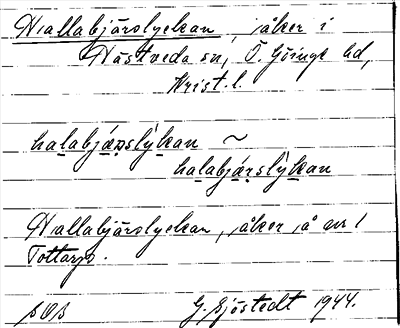 Hallabjärslyckan, åker i
Hästveda sn, Ö. Göinge hd,
Krist. l.
halabjæṛslỳkan ~
halabjáṛslỳkan
Hallabjärslyckan, åker å nr 1
Tottarp.
G. Sjöstedt 1944.